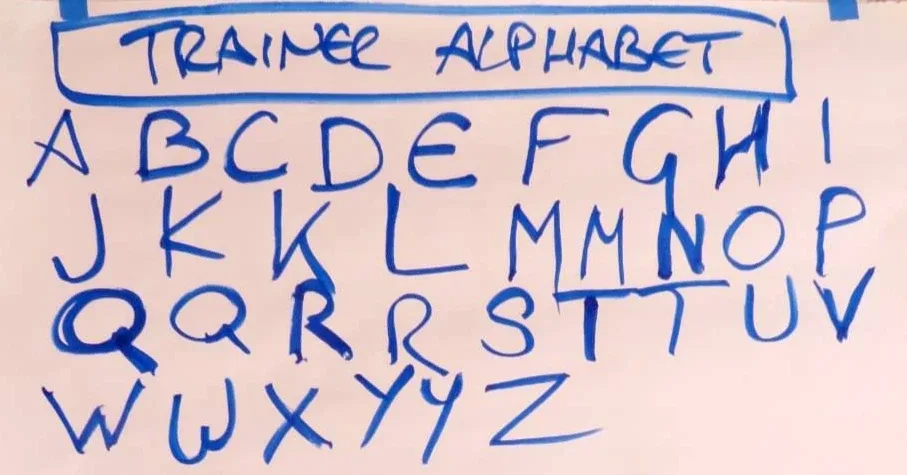 TRAINER ALPHABET
A B C D E F G H I
J K K L M M N O P
Q Q R R S T T U V
W W X Y Y Z